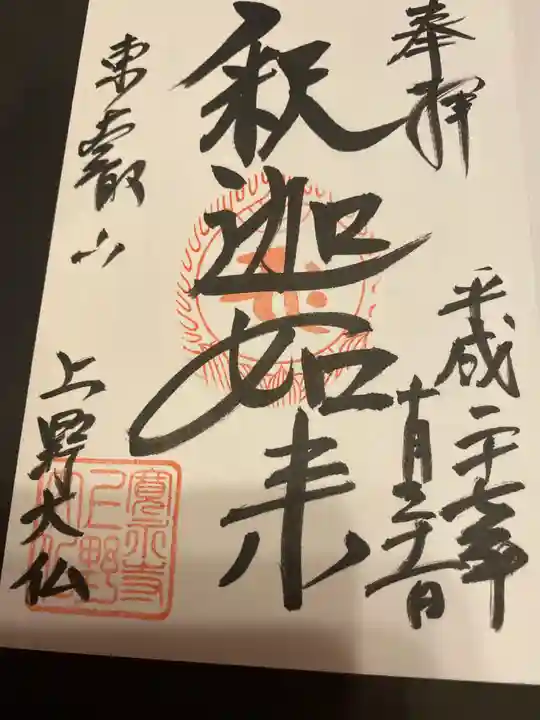 奉拝
平成二十七年
十月三十一日
釈迦如来
東叡山
上野大仏
寛永寺
上野
大仏